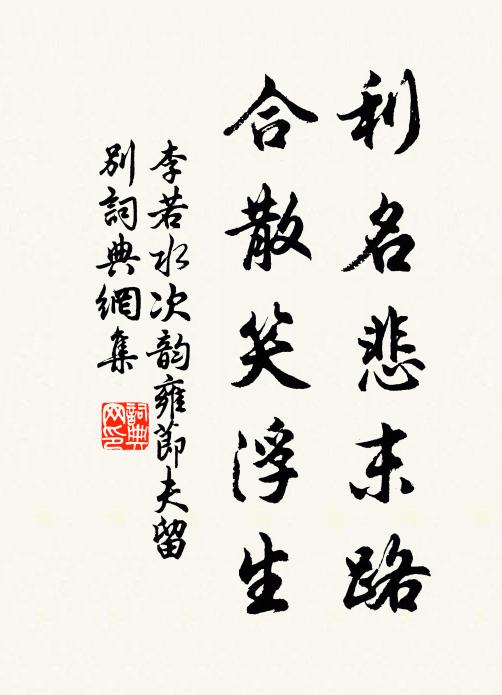 利名悲末路
合散笑浮生
李若水次韵雍節夫留
別詞典網集
詞典网印